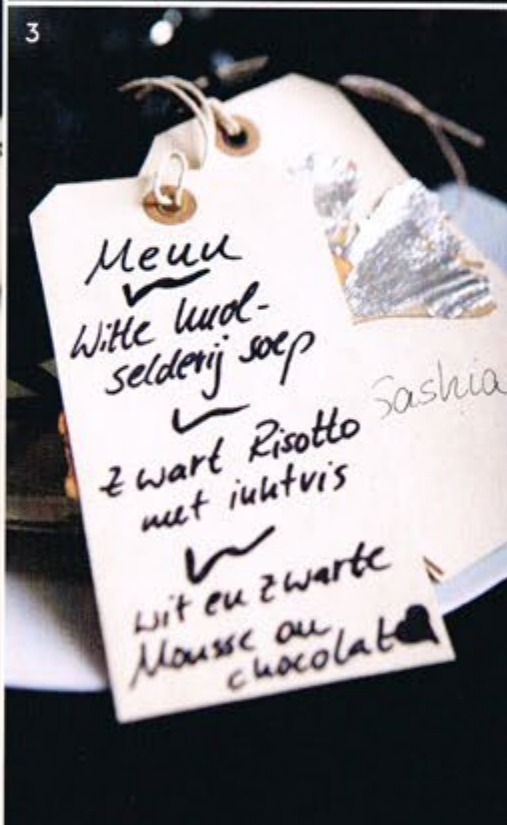 3
Menu
Witte knol-
selderij soep
Zwart Risotto
met inktvis
wit en zwarte
Mousse au
chocolat
Saskia